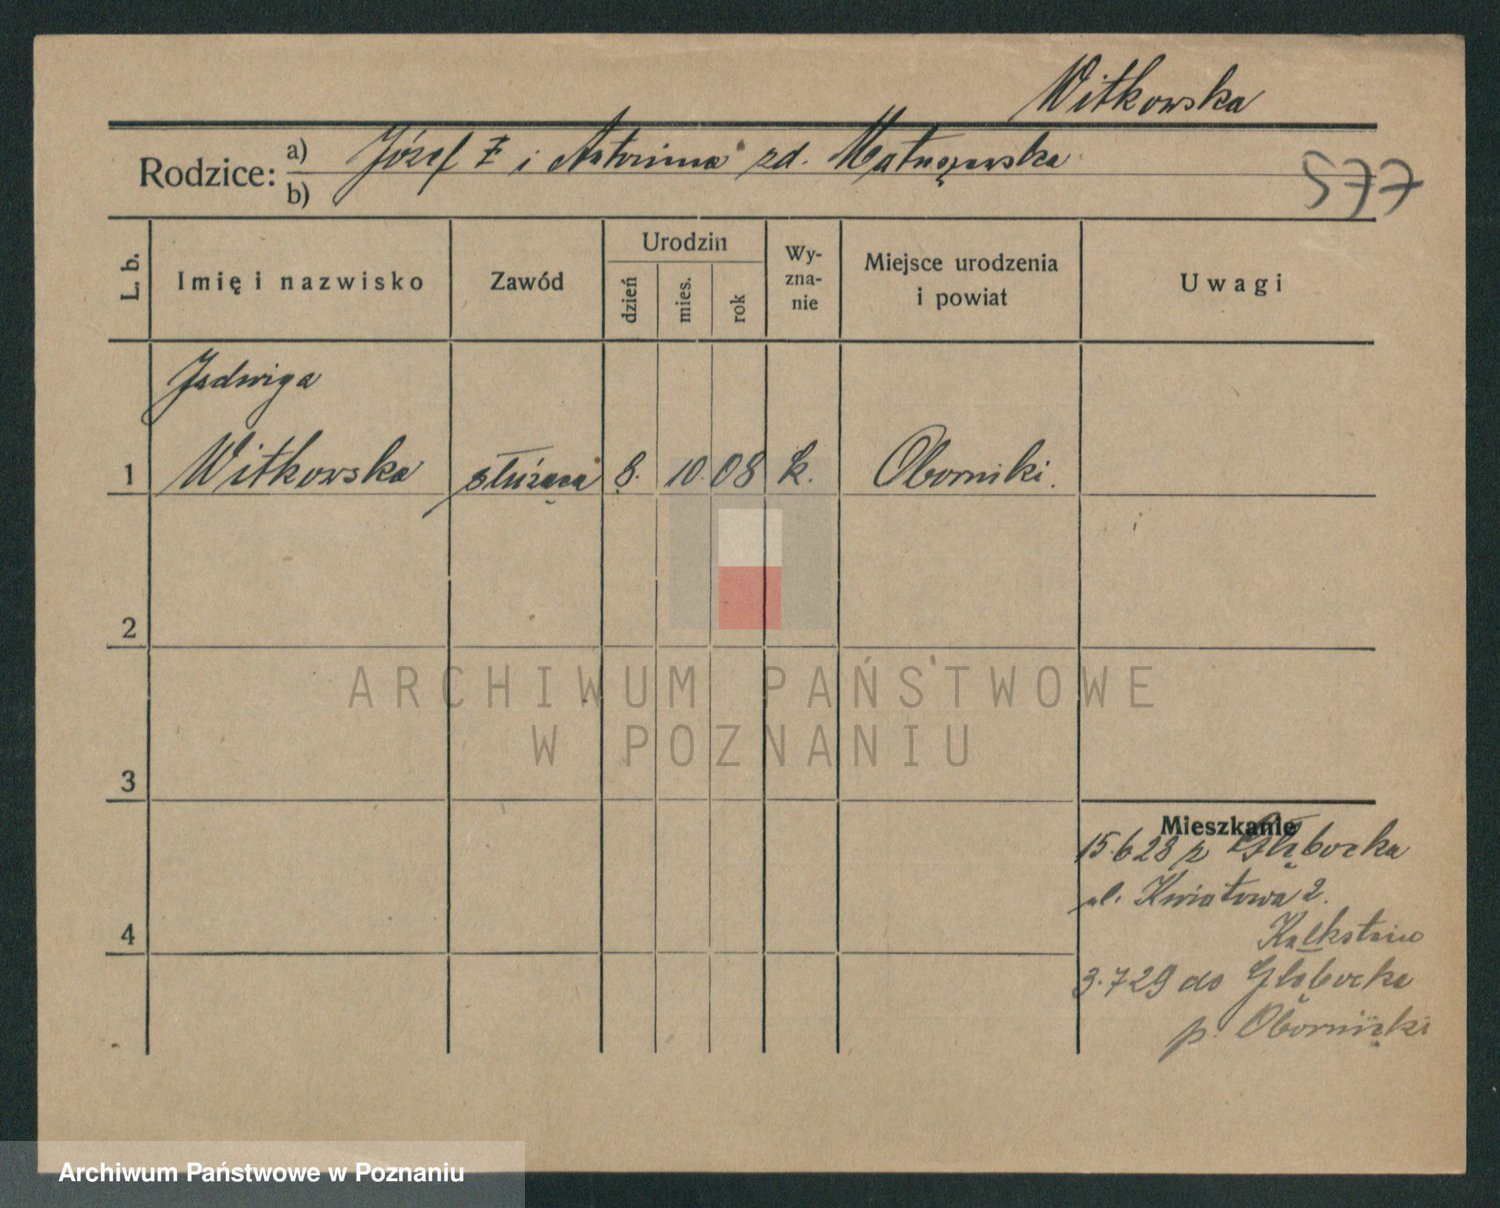 Witkowska
Rodzice: a) Józef i Antonina zd. Matuszewska
b)
577
L. b.
Imię i nazwisko
Zawód
Urodzin
dzień
mies.
rok
Wy-
zna-
nie
Miejsce urodzenia
i powiat
Uwagi
Jadwiga
1 Witkowska służąca 8. 10. 08 k. Oborniki.
2
ARCHIWUM PAŃSTWOWE
W POZNANIU
3
Mieszkanie
15.6 28 z Głębocka
ul. Kwiatowa 2.
4
Kalkstein
3.7 29 do Głębocka
p. Oborniki
Archiwum Państwowe w Poznaniu